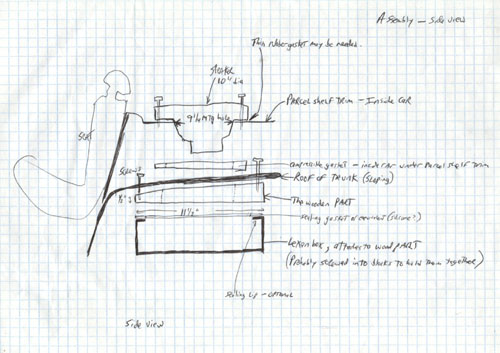 Assembly - side view
Thin rubber gasket may be needed.
Speaker
10" dia
PARCEL SHELF TRIM - Inside CAR
9 1/8 MTG hole
SEAT
gasket - inside car under parcel shelf trim
ROOF OF TRUNK (Sloping)
Screws
The wooden PART
11 1/2"
sealing gasket
box, attaches to wood PART
(Probably screwed into blocks to hold them together)
sealing lip - optional
Side view